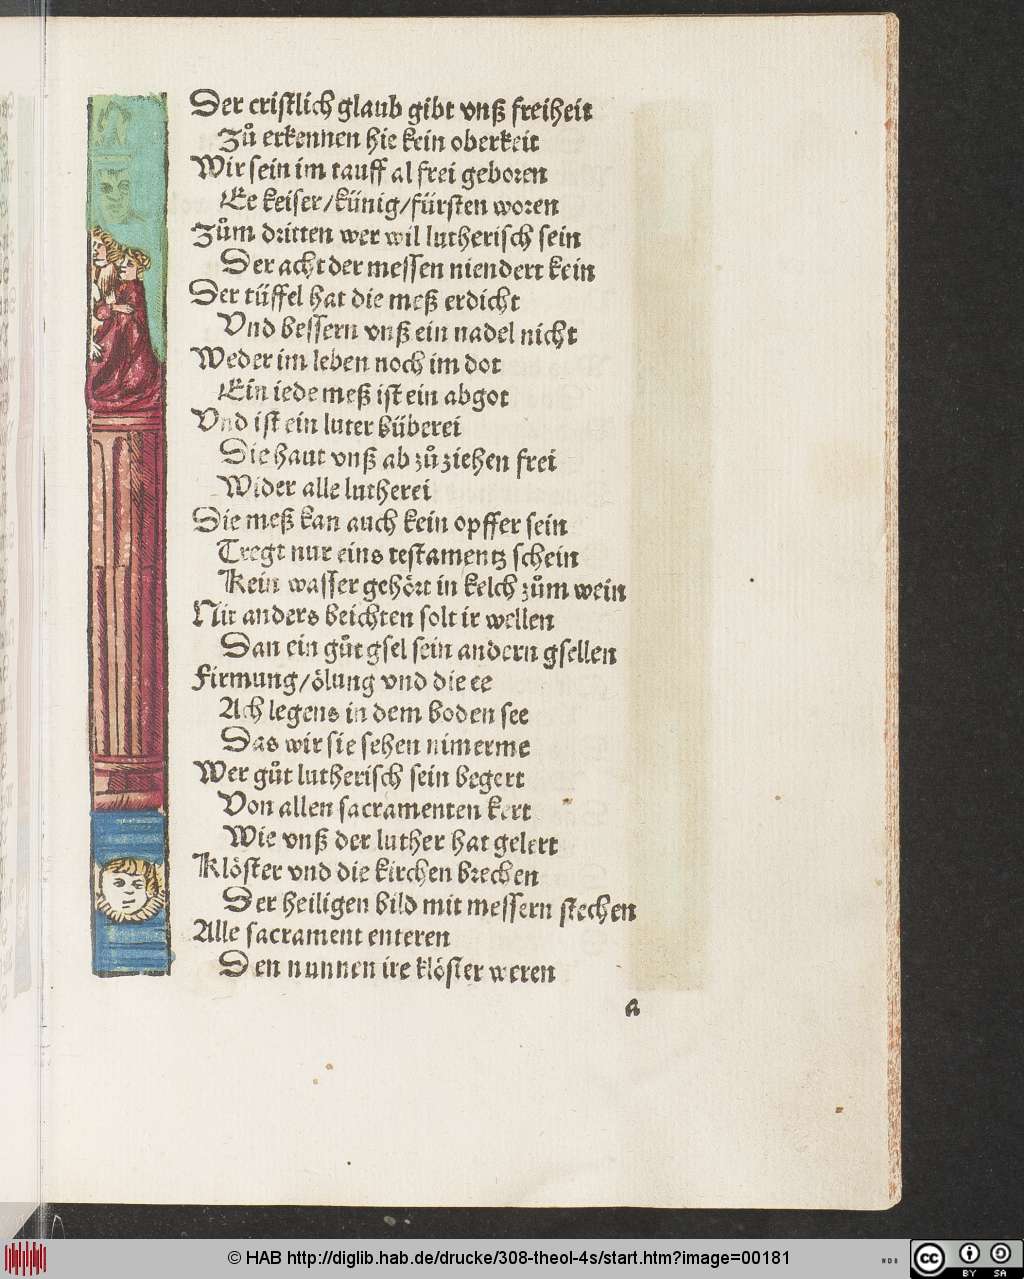 Der cristlich glaub gibt vnß freiheit
Zů erkennen hie kein oberkeit
Wir sein im tauff al frei geboren
Ee keiser/künig/fürsten woren
Zům dritten wer wil lutherisch sein
Der acht der messen niendert kein
Der tüffel hat die meß erdicht
Vnd bessern vnß ein nadel nicht
Weder im leben noch im dot
Ein iede meß ist ein abgot
Vnd ist ein luter büberei
Die haut vnß ab zů ziehen frei
Wider alle lutherei
Die meß kan auch kein opffer sein
Tregt nur eins testamentz schein
Kein wasser gehört in kelch zům wein
Nit anders beichten solt ir wellen
Dan ein gůt gsel sein andern gsellen
Firmung/ölung vnd die ee
Ach legens in dem boden see
Das wir sie sehen nimerme
Wer gůt lutherisch sein begert
Von allen sacramenten kert
Wie vnß der luther hat gelert
Klöster vnd die kirchen brechen
Der heiligen bild mit messern stechen
Alle sacrament enteren
Den nunnen ire klöster weren
a
© HAB http://diglib.hab.de/drucke/308-theol-4s/start.htm?image=00181
cc BY SA